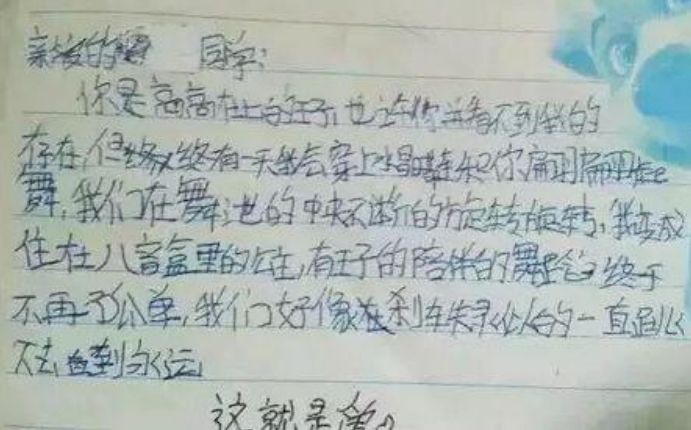 亲爱的 同学:
你是高高在上的王子,也许你并看不到我的
存在,但终有一天我会穿上水晶鞋和你翩翩起
舞,我们在舞池的中央不断的旋转旋转,我变成
住在八音盒里的公主,有王子的陪伴的舞终于
不再孤单,我们好像在刹车失灵似的一直跳
下去直到永远
这就是爱。